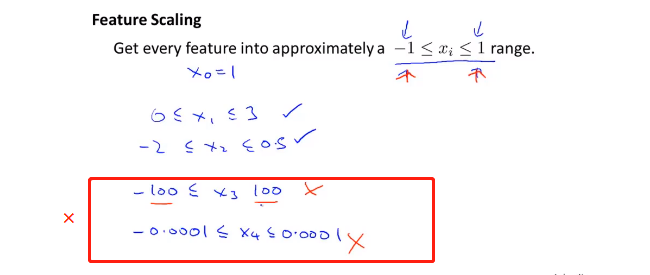 Feature Scaling
Get every feature into approximately a -1 ≤ xᵢ ≤ 1 range.
x₀=1
0 ≤ x₁ ≤ 3 ✓
-2 ≤ x₂ ≤ 0.5 ✓
-100 ≤ x₃ 100 ×
×
-0.0001 ≤ x₄ ≤ 0.0001 ×